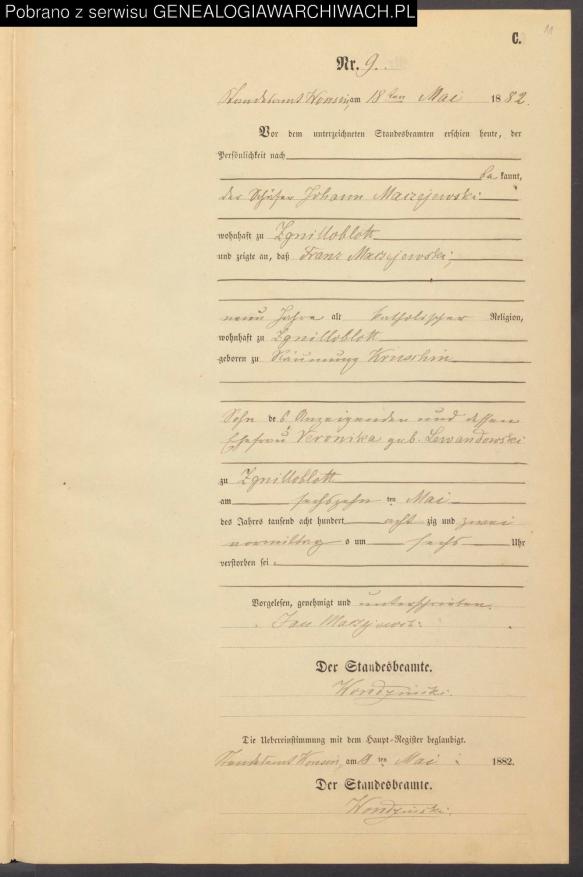 Pobrano z serwisu GENEALOGIAWARCHIWACH.PL
11
C.
Nr. 9.
Standesamt Konsin, am 18 ten Mai 1882.
Vor dem unterzeichneten Standesbeamten erschien heute, der
Persönlichkeit nach
be kannt,
der Schäfer Johann Maczejewski
wohnhaft zu Zgnilloblott
und zeigte an, daß Franz Maczejewski,
neun Jahre alt katholischer Religion,
wohnhaft zu Zgnilloblott
geboren zu Räumung Kruschin
Sohn des Anzeigenden und dessen
Ehefrau Veronika geb. Lewandowski
zu Zgnilloblott
am sechszehn ten Mai
des Jahres tausend acht hundert acht zig und zwei
vormittags um sechs Uhr
verstorben sei.
Vorgelesen, genehmigt und unterschrieben.
Jan
Der Standesbeamte.
Die Uebereinstimmung mit dem Haupt-Register beglaubigt.
Standesamt Konsin, am ten Mai 1882.
Der Standesbeamte.